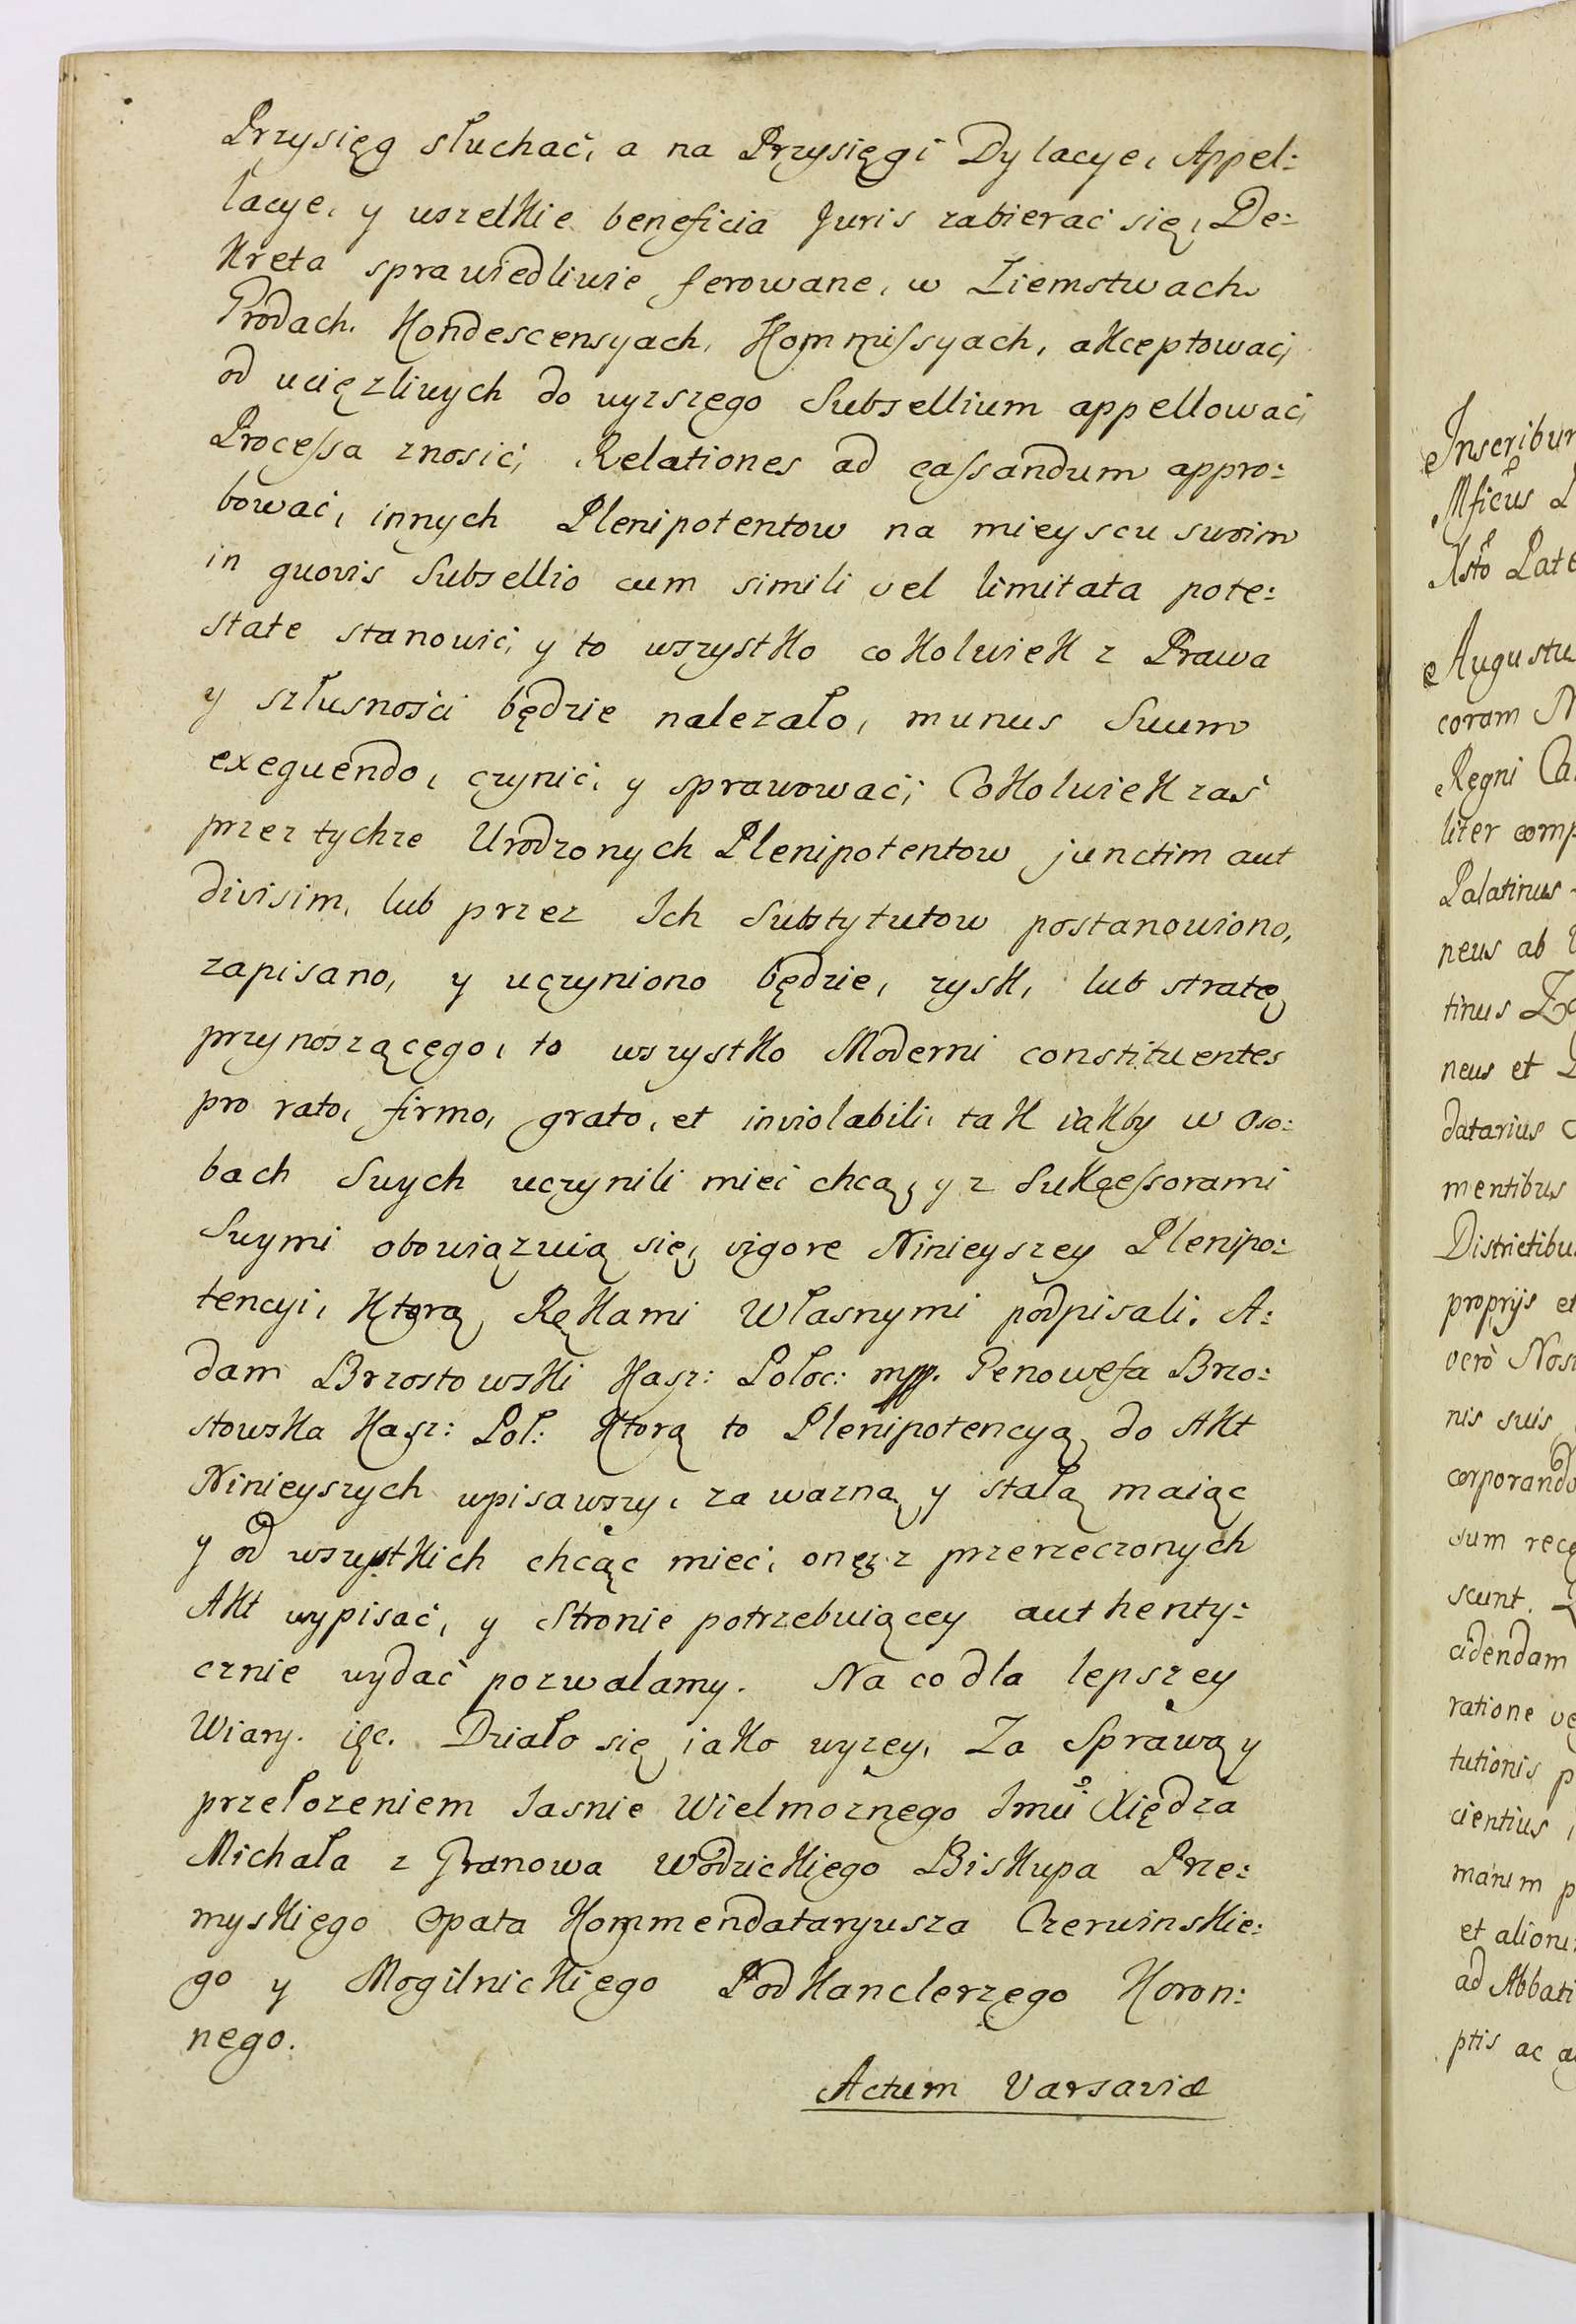 Przysięg słuchać, a na Przysięgi Dylacye, Appel:
lacye, y wszelkie beneficia Juris zabierać się, De:
kreta sprawiedliwie ferowane, w Ziemstwach
Grodach. Kondescensyach, Kommissyach, akceptować,
od uciężliwych do wyzszego Subsellium appellować,
Processa znosić, Relationes ad cassandum appro:
bować, innych Plenipotentow na mieyscu swoim
in quovis Subsellio cum simili vel limitata pote:
state stanowić, y to wszystko cokolwiek z Prawa
y szłusności będzie nalezało, munus Suum
exequendo, czynić, y sprawować; Cokolwiek zaś
przez tychze Urodzonych Plenipotentow junctim aut
divisim, lub przez Ich Substytutow postanowiono,
zapisano, y uczyniono będzie, zysk, lub stratę
przynoszącego, to wszystko Moderni constituentes
pro rato, firmo, grato, et inviolabili, tak iakby w oso:
bach Swych uczynili mieć chcą, y z Sukcessorami
Swymi obowiązuią się, vigore Ninieyszey Plenipo:
tencyi, Ktorą Rękami Własnymi podpisali. A:
dam Brzostowski Kasz: Poloc: mpp. Genowefa Brzo:
stowska Kasz: Pol: Ktorą to Plenipotencyą do Akt
Ninieyszych wpisawszy, za wazną y stałą maiąc
y od wszystkich chcąc mieć, onęz z przerzeczonych
Akt wypisać, y Stronie potrzebuiącey authenty:
cznie wydać pozwalamy. Na co dla lepszey
Wiary. i&c. Działo się iako wyzey, Za Sprawą y
przełozeniem Jasnie Wielmoznego Jmu Xiędza
Michała z Granowa Wodzickiego Biskupa Prze:
myskiego Opata Kommendataryusza Czerwinskie:
go y Mogilnickiego Podkanclerzego Koron:
nego.
Actum Varsaviæ
Inscribun
Mficus
Xsto Pate
Augustu
coram N
Regni Ca
liter comp
Palatinus
neus ab
tinus
neus et
datarius
mentibus
Districtibu
proprijs et
vero Nos
nis suis
corporando
sum rec
scunt.
cidendam
ratione ve
tutionis p
cientius
manum p
et alioru
ad Abbati
ptis ac a